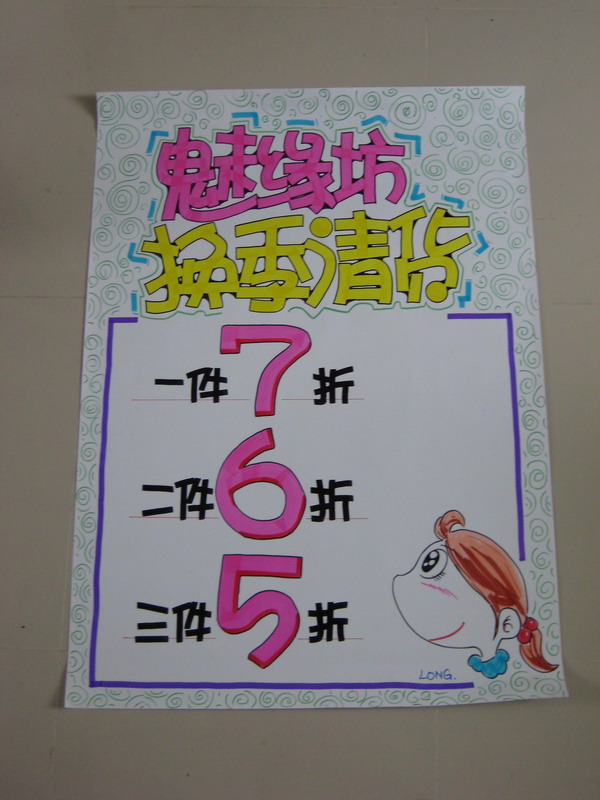 魅缘坊
换季清货
一件7折
二件6折
三件5折
LONG.